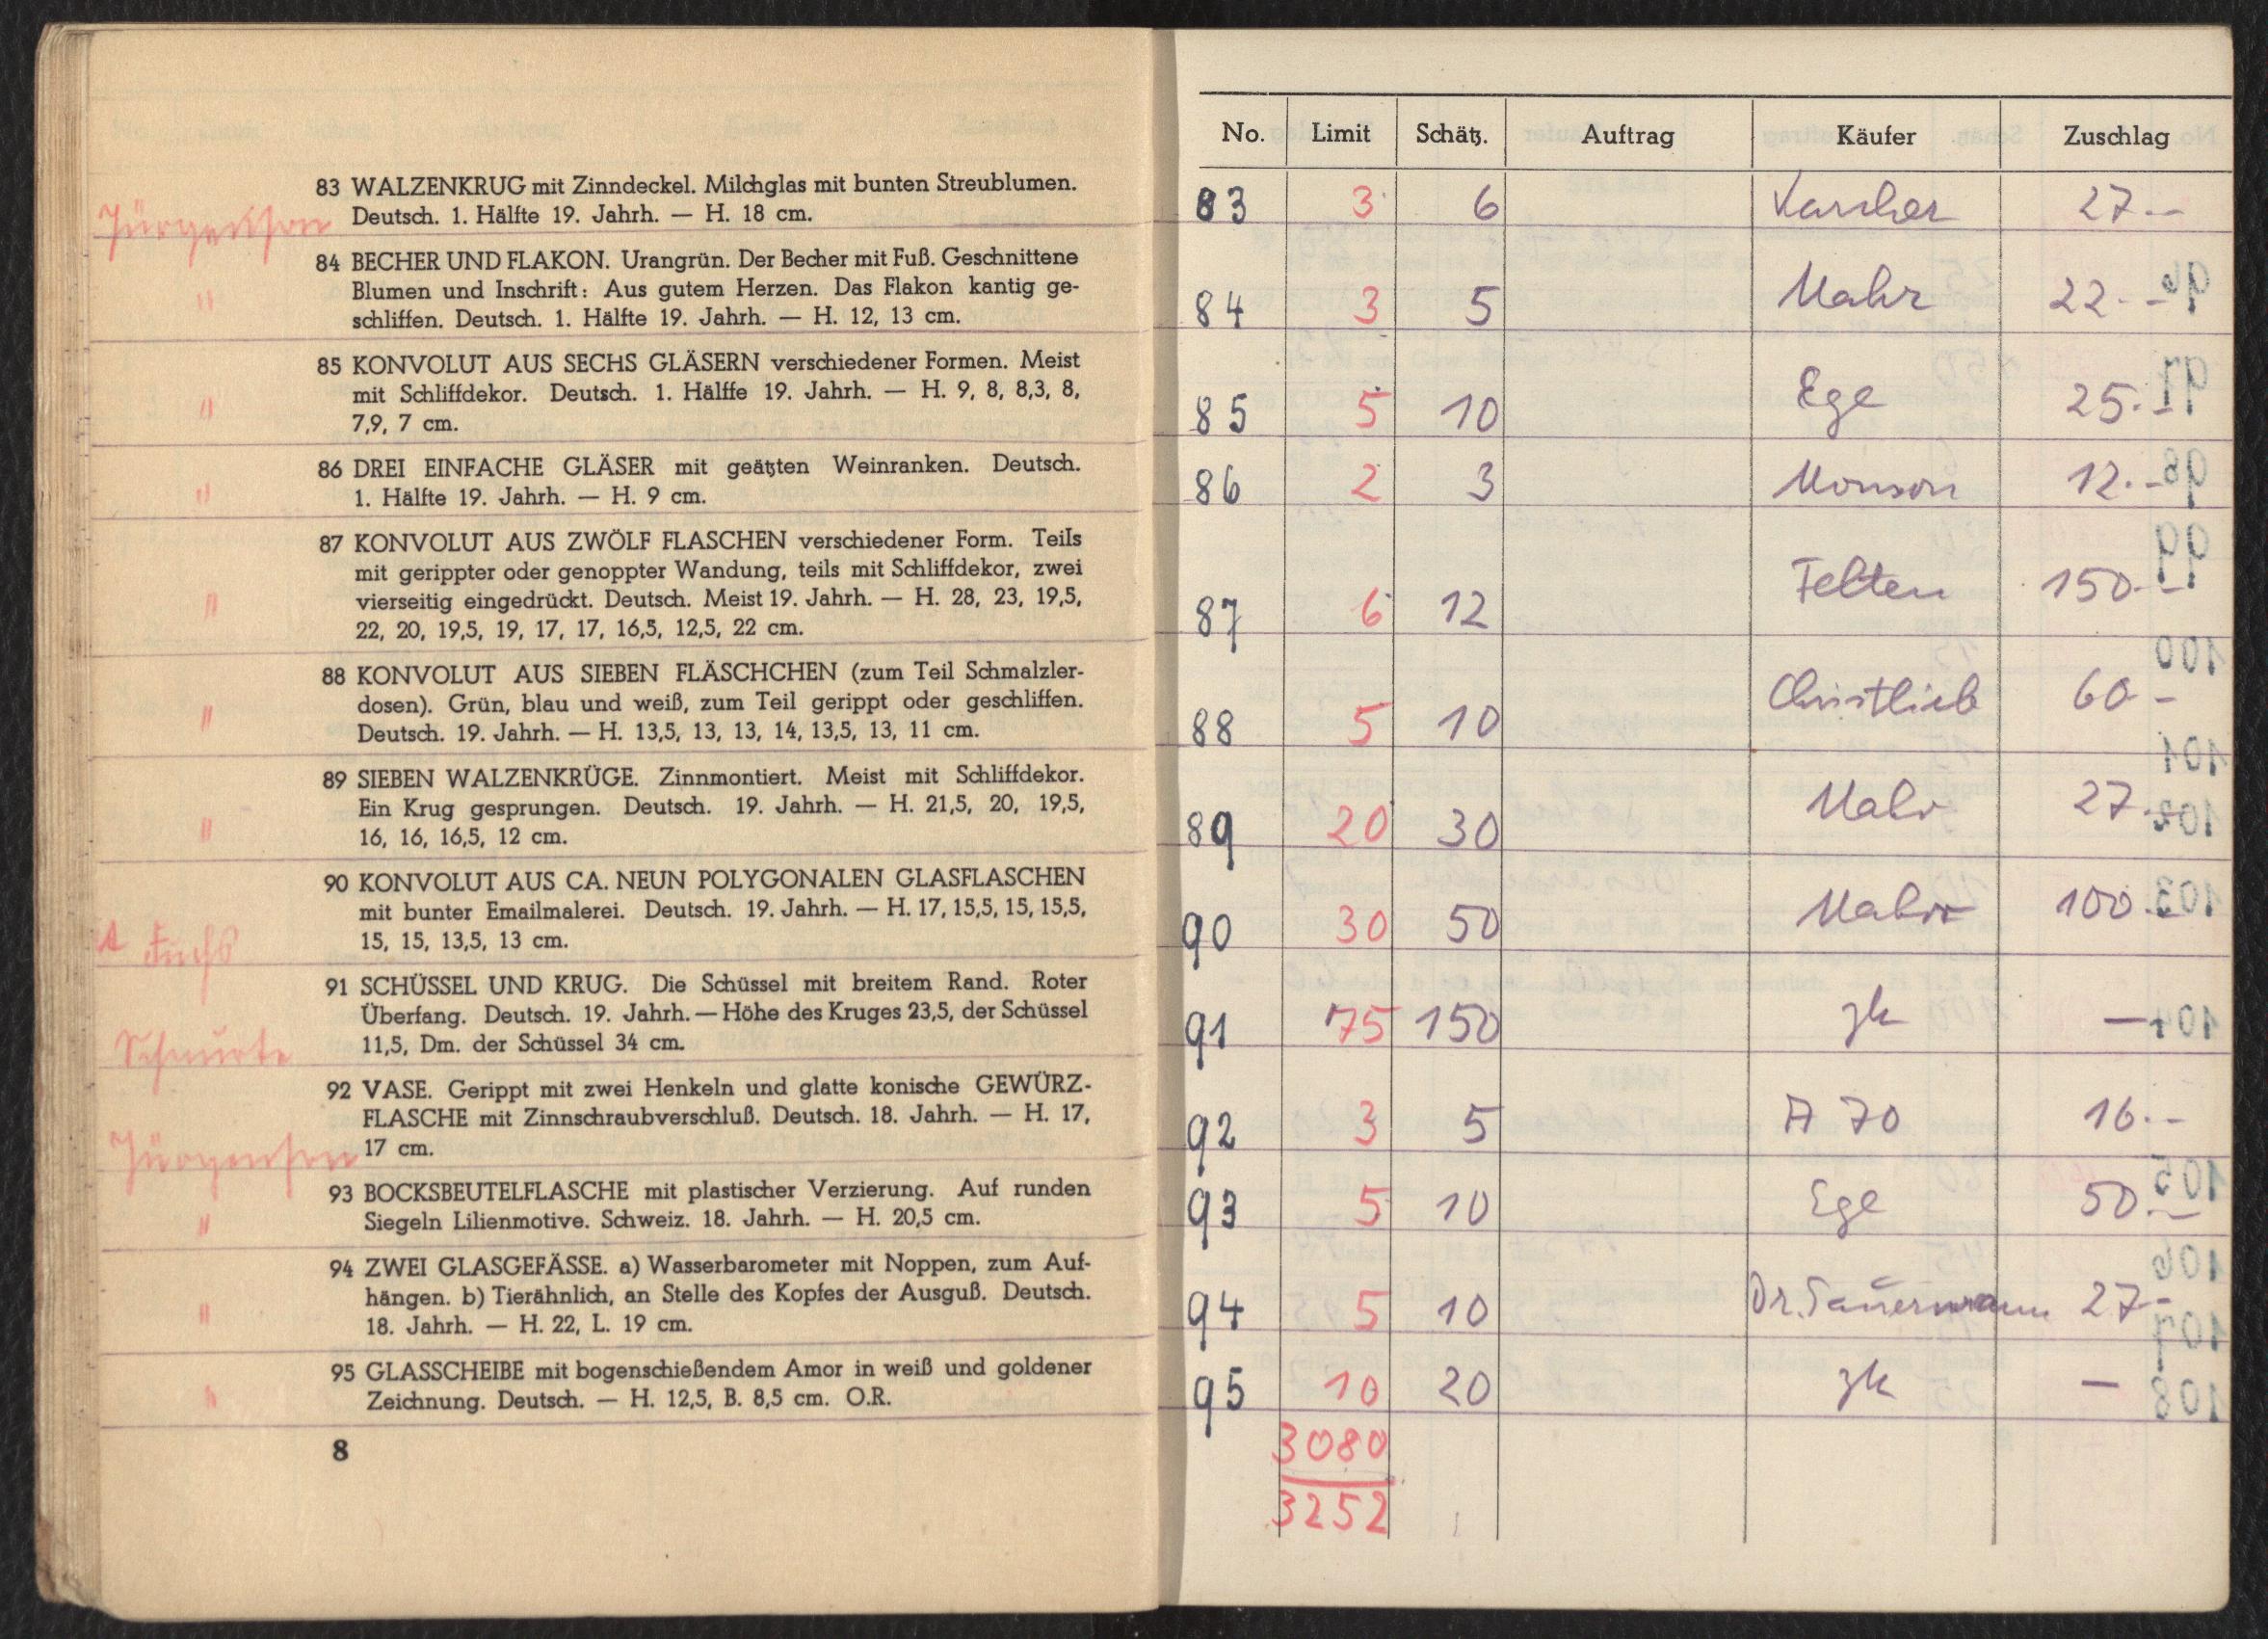 83 WALZENKRUG mit Zinndeckel. Milchglas mit bunten Streublumen.
Deutsch. 1. Hälfte 19. Jahrh. — H. 18 cm.
84 BECHER UND FLAKON. Urangrün. Der Becher mit Fuß. Geschnittene
Blumen und Inschrift: Aus gutem Herzen. Das Flakon kantig ge-
" schliffen. Deutsch. 1. Hälfte 19. Jahrh. — H. 12, 13 cm.
85 KONVOLUT AUS SECHS GLÄSERN verschiedener Formen. Meist
mit Schliffdekor. Deutsch. 1. Hälffe 19. Jahrh. — H. 9, 8, 8,3, 8,
" 7,9, 7 cm.
86 DREI EINFACHE GLÄSER mit geätzten Weinranken. Deutsch.
" 1. Hälfte 19. Jahrh. — H. 9 cm.
87 KONVOLUT AUS ZWÖLF FLASCHEN verschiedener Form. Teils
mit gerippter oder genoppter Wandung, teils mit Schliffdekor, zwei
" vierseitig eingedrückt. Deutsch. Meist 19. Jahrh. — H. 28, 23, 19,5,
22, 20, 19,5, 19, 17, 17, 16,5, 12,5, 22 cm.
88 KONVOLUT AUS SIEBEN FLÄSCHCHEN (zum Teil Schmalzler-
dosen). Grün, blau und weiß, zum Teil gerippt oder geschliffen.
" Deutsch. 19. Jahrh. — H. 13,5, 13, 13, 14, 13,5, 13, 11 cm.
89 SIEBEN WALZENKRÜGE. Zinnmontiert. Meist mit Schliffdekor.
Ein Krug gesprungen. Deutsch. 19. Jahrh. — H. 21,5, 20, 19,5,
" 16, 16, 16,5, 12 cm.
90 KONVOLUT AUS CA. NEUN POLYGONALEN GLASFLASCHEN
mit bunter Emailmalerei. Deutsch. 19. Jahrh. — H. 17, 15,5, 15, 15,5,
Fuchs 15, 15, 13,5, 13 cm.
91 SCHÜSSEL UND KRUG. Die Schüssel mit breitem Rand. Roter
Überfang. Deutsch. 19. Jahrh. — Höhe des Kruges 23,5, der Schüssel
11,5, Dm. der Schüssel 34 cm.
92 VASE. Gerippt mit zwei Henkeln und glatte konische GEWÜRZ-
FLASCHE mit Zinnschraubverschluß. Deutsch. 18. Jahrh. — H. 17,
Jürgensen 17 cm.
93 BOCKSBEUTELFLASCHE mit plastischer Verzierung. Auf runden
" Siegeln Lilienmotive. Schweiz. 18. Jahrh. — H. 20,5 cm.
94 ZWEI GLASGEFÄSSE. a) Wasserbarometer mit Noppen, zum Auf-
hängen. b) Tierähnlich, an Stelle des Kopfes der Ausguß. Deutsch.
" 18. Jahrh. — H. 22, L. 19 cm.
95 GLASSCHEIBE mit bogenschießendem Amor in weiß und goldener
" Zeichnung. Deutsch. — H. 12,5, B. 8,5 cm. O.R.
8
No. Limit Schätz. Auftrag Käufer Zuschlag
83 3 6 Karcher 27.—
84 3 5 Mahr 22.—
85 5 10 Ege 25.—
86 2 3 Monson 12.—
87 6 12 Felten 150.—
88 5 10 Christlieb 60.—
89 20 30 Mahr 27.—
90 30 50 Mahr 100.—
91 75 150 zk —
92 3 5 A 70 16.—
93 5 10 Ege 50.—
94 5 10 Dr. Sauermann 27.—
95 10 20 zk —
3080
3252